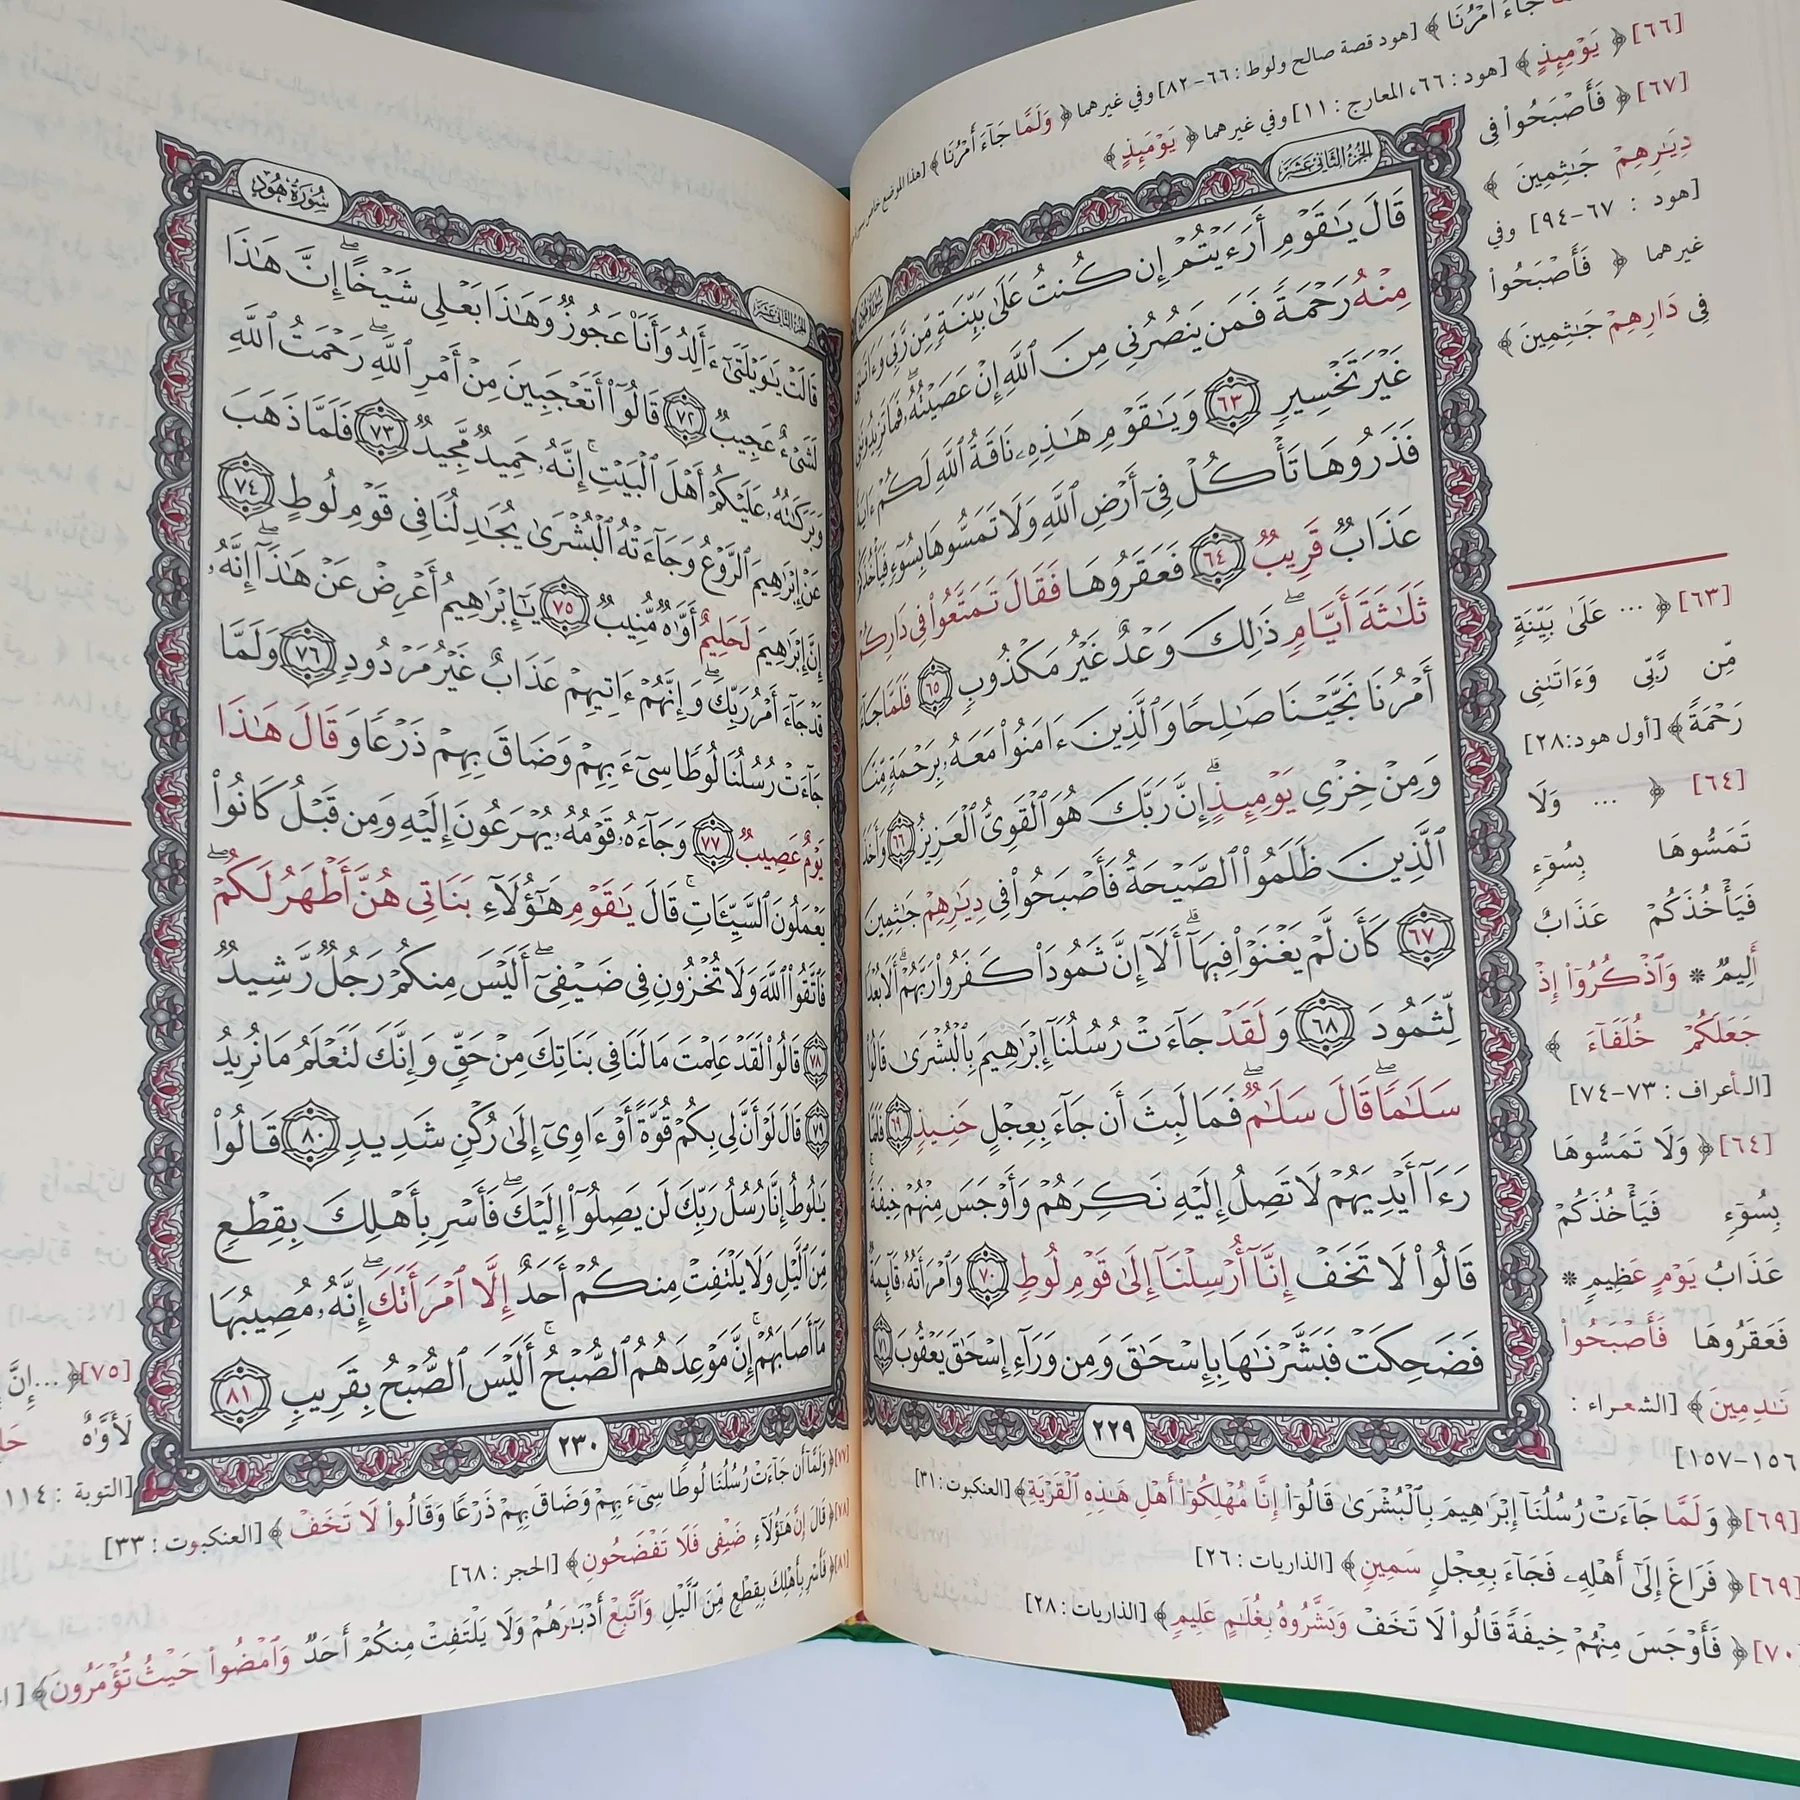 جَآءَ أَمۡرُنَا ﴾ [هود قصة صالح ولوط : ٦٦-٨٢] وفي غيرهما ﴿ وَلَمَّا جَآءَ أَمۡرُنَا ﴾ [هذا الموضع خاص
[٦٦] ﴿ يَوۡمِئِذٍ ﴾ [هود : ٦٦، المعارج : ١١] وفي غيرهما ﴿ يَوۡمَئِذٍ ﴾
[٦٧] ﴿ فَأَصۡبَحُواْ فِي
دِيَٰرِهِمۡ جَٰثِمِينَ ﴾
[هود : ٦٧-٩٤] وفي
غيرهما ﴿ فَأَصۡبَحُواْ
فِي دَارِهِمۡ جَٰثِمِينَ ﴾
الجزء الثاني عشر
قَالَ يَٰقَوۡمِ أَرَءَيۡتُمۡ إِن كُنتُ عَلَىٰ بَيِّنَةٖ مِّن رَّبِّي وَءَاتَىٰنِي
مِنۡهُ رَحۡمَةٗ فَمَن يَنصُرُنِي مِنَ ٱللَّهِ إِنۡ عَصَيۡتُهُۥۖ فَمَا تَزِيدُونَنِي
غَيۡرَ تَخۡسِيرٖ ٦٣ وَيَٰقَوۡمِ هَٰذِهِۦ نَاقَةُ ٱللَّهِ لَكُمۡ ءَايَةٗ
فَذَرُوهَا تَأۡكُلۡ فِيٓ أَرۡضِ ٱللَّهِ وَلَا تَمَسُّوهَا بِسُوٓءٖ فَيَأۡخُذَكُمۡ
عَذَابٞ قَرِيبٞ ٦٤ فَعَقَرُوهَا فَقَالَ تَمَتَّعُواْ فِي دَارِكُمۡ
ثَلَٰثَةَ أَيَّامٖۖ ذَٰلِكَ وَعۡدٌ غَيۡرُ مَكۡذُوبٖ ٦٥ فَلَمَّا جَآءَ
أَمۡرُنَا نَجَّيۡنَا صَٰلِحٗا وَٱلَّذِينَ ءَامَنُواْ مَعَهُۥ بِرَحۡمَةٖ مِّنَّا
وَمِنۡ خِزۡيِ يَوۡمِئِذٍۚ إِنَّ رَبَّكَ هُوَ ٱلۡقَوِيُّ ٱلۡعَزِيزُ ٦٦ وَأَخَذَ
ٱلَّذِينَ ظَلَمُواْ ٱلصَّيۡحَةُ فَأَصۡبَحُواْ فِي دِيَٰرِهِمۡ جَٰثِمِينَ
٦٧ كَأَن لَّمۡ يَغۡنَوۡاْ فِيهَآۗ أَلَآ إِنَّ ثَمُودَاْ كَفَرُواْ رَبَّهُمۡۗ أَلَا بُعۡدٗا
لِّثَمُودَ ٦٨ وَلَقَدۡ جَآءَتۡ رُسُلُنَآ إِبۡرَٰهِيمَ بِٱلۡبُشۡرَىٰ قَالُواْ
سَلَٰمٗاۖ قَالَ سَلَٰمٞۖ فَمَا لَبِثَ أَن جَآءَ بِعِجۡلٍ حَنِيذٖ ٦٩ فَلَمَّا
رَءَآ أَيۡدِيَهُمۡ لَا تَصِلُ إِلَيۡهِ نَكِرَهُمۡ وَأَوۡجَسَ مِنۡهُمۡ خِيفَةٗۚ
قَالُواْ لَا تَخَفۡ إِنَّآ أُرۡسِلۡنَآ إِلَىٰ قَوۡمِ لُوطٖ ٧٠ وَٱمۡرَأَتُهُۥ قَآئِمَةٞ
فَضَحِكَتۡ فَبَشَّرۡنَٰهَا بِإِسۡحَٰقَ وَمِن وَرَآءِ إِسۡحَٰقَ يَعۡقُوبَ ٧١
٢٢٩
[٦٣] ﴿ ... عَلَىٰ بَيِّنَةٖ
مِّن رَّبِّي وَءَاتَىٰنِي
رَحۡمَةٗ ﴾ [أول هود:٢٨]
[٦٤] ﴿ ... وَلَا
تَمَسُّوهَا بِسُوٓءٖ
فَيَأۡخُذَكُمۡ عَذَابٌ
أَلِيمٞ * وَٱذۡكُرُوٓاْ إِذۡ
جَعَلَكُمۡ خُلَفَآءَ ﴾
[الأعراف : ٧٣-٧٤]
[٦٤] ﴿ وَلَا تَمَسُّوهَا
بِسُوٓءٖ فَيَأۡخُذَكُمۡ
عَذَابُ يَوۡمٍ عَظِيمٖ *
فَعَقَرُوهَا فَأَصۡبَحُواْ
نَٰدِمِينَ ﴾ [الشعراء :
١٥٦-١٥٧]
[٦٩] ﴿ وَلَمَّا جَآءَتۡ رُسُلُنَآ إِبۡرَٰهِيمَ بِٱلۡبُشۡرَىٰ قَالُوٓاْ إِنَّا مُهۡلِكُوٓاْ أَهۡلِ هَٰذِهِ ٱلۡقَرۡيَةِ ﴾ [العنكبوت : ٣١]
[٦٩] ﴿ فَرَاغَ إِلَىٰٓ أَهۡلِهِۦ فَجَآءَ بِعِجۡلٖ سَمِينٖ ﴾ [الذاريات : ٢٦]
[٧٠] ﴿ فَأَوۡجَسَ مِنۡهُمۡ خِيفَةٗ قَالُواْ لَا تَخَفۡ وَبَشَّرُوهُ بِغُلَٰمٍ عَلِيمٖ ﴾ [الذاريات : ٢٨]
الجزء الثاني عشر
سورة هود
قَالَتۡ يَٰوَيۡلَتَىٰٓ ءَأَلِدُ وَأَنَا۠ عَجُوزٞ وَهَٰذَا بَعۡلِي شَيۡخًاۖ إِنَّ هَٰذَا
لَشَيۡءٌ عَجِيبٞ ٧٢ قَالُوٓاْ أَتَعۡجَبِينَ مِنۡ أَمۡرِ ٱللَّهِۖ رَحۡمَتُ ٱللَّهِ
وَبَرَكَٰتُهُۥ عَلَيۡكُمۡ أَهۡلَ ٱلۡبَيۡتِۚ إِنَّهُۥ حَمِيدٞ مَّجِيدٞ ٧٣ فَلَمَّا ذَهَبَ
عَنۡ إِبۡرَٰهِيمَ ٱلرَّوۡعُ وَجَآءَتۡهُ ٱلۡبُشۡرَىٰ يُجَٰدِلُنَا فِي قَوۡمِ لُوطٍ ٧٤
إِنَّ إِبۡرَٰهِيمَ لَحَلِيمٌ أَوَّٰهٞ مُّنِيبٞ ٧٥ يَٰٓإِبۡرَٰهِيمُ أَعۡرِضۡ عَنۡ هَٰذَآۖ إِنَّهُۥ
قَدۡ جَآءَ أَمۡرُ رَبِّكَۖ وَإِنَّهُمۡ ءَاتِيهِمۡ عَذَابٌ غَيۡرُ مَرۡدُودٖ ٧٦ وَلَمَّا
جَآءَتۡ رُسُلُنَا لُوطٗا سِيٓءَ بِهِمۡ وَضَاقَ بِهِمۡ ذَرۡعٗا وَقَالَ هَٰذَا
يَوۡمٌ عَصِيبٞ ٧٧ وَجَآءَهُۥ قَوۡمُهُۥ يُهۡرَعُونَ إِلَيۡهِ وَمِن قَبۡلُ كَانُواْ
يَعۡمَلُونَ ٱلسَّيِّـَٔاتِۚ قَالَ يَٰقَوۡمِ هَٰٓؤُلَآءِ بَنَاتِي هُنَّ أَطۡهَرُ لَكُمۡۖ
فَٱتَّقُواْ ٱللَّهَ وَلَا تُخۡزُونِ فِي ضَيۡفِيٓۖ أَلَيۡسَ مِنكُمۡ رَجُلٞ رَّشِيدٞ
٧٨ قَالُواْ لَقَدۡ عَلِمۡتَ مَا لَنَا فِي بَنَاتِكَ مِنۡ حَقّٖ وَإِنَّكَ لَتَعۡلَمُ مَا نُرِيدُ
٧٩ قَالَ لَوۡ أَنَّ لِي بِكُمۡ قُوَّةً أَوۡ ءَاوِيٓ إِلَىٰ رُكۡنٖ شَدِيدٖ ٨٠ قَالُواْ
يَٰلُوطُ إِنَّا رُسُلُ رَبِّكَ لَن يَصِلُوٓاْ إِلَيۡكَۖ فَأَسۡرِ بِأَهۡلِكَ بِقِطۡعٖ
مِّنَ ٱلَّيۡلِ وَلَا يَلۡتَفِتۡ مِنكُمۡ أَحَدٌ إِلَّا ٱمۡرَأَتَكَۖ إِنَّهُۥ مُصِيبُهَا
مَآ أَصَابَهُمۡۚ إِنَّ مَوۡعِدَهُمُ ٱلصُّبۡحُۚ أَلَيۡسَ ٱلصُّبۡحُ بِقَرِيبٖ ٨١
٢٣٠
[٧٥] ﴿ ... إِنَّ
لَأَوَّٰهٌ
[التوبة : ١١٤
[٧٧] ﴿ وَلَمَّآ أَن جَآءَتۡ رُسُلُنَا لُوطٗا سِيٓءَ بِهِمۡ وَضَاقَ بِهِمۡ ذَرۡعٗا وَقَالُواْ لَا تَخَفۡ ﴾ [العنكبوت : ٣٣]
[٧٨] ﴿ قَالَ إِنَّ هَٰٓؤُلَآءِ ضَيۡفِي فَلَا تَفۡضَحُونِ ﴾ [الحجر : ٦٨]
[٨١] ﴿ فَأَسۡرِ بِأَهۡلِكَ بِقِطۡعٖ مِّنَ ٱلَّيۡلِ وَٱتَّبِعۡ أَدۡبَٰرَهُمۡ وَلَا يَلۡتَفِتۡ مِنكُمۡ أَحَدٞ وَٱمۡضُواْ حَيۡثُ تُؤۡمَرُونَ ﴾